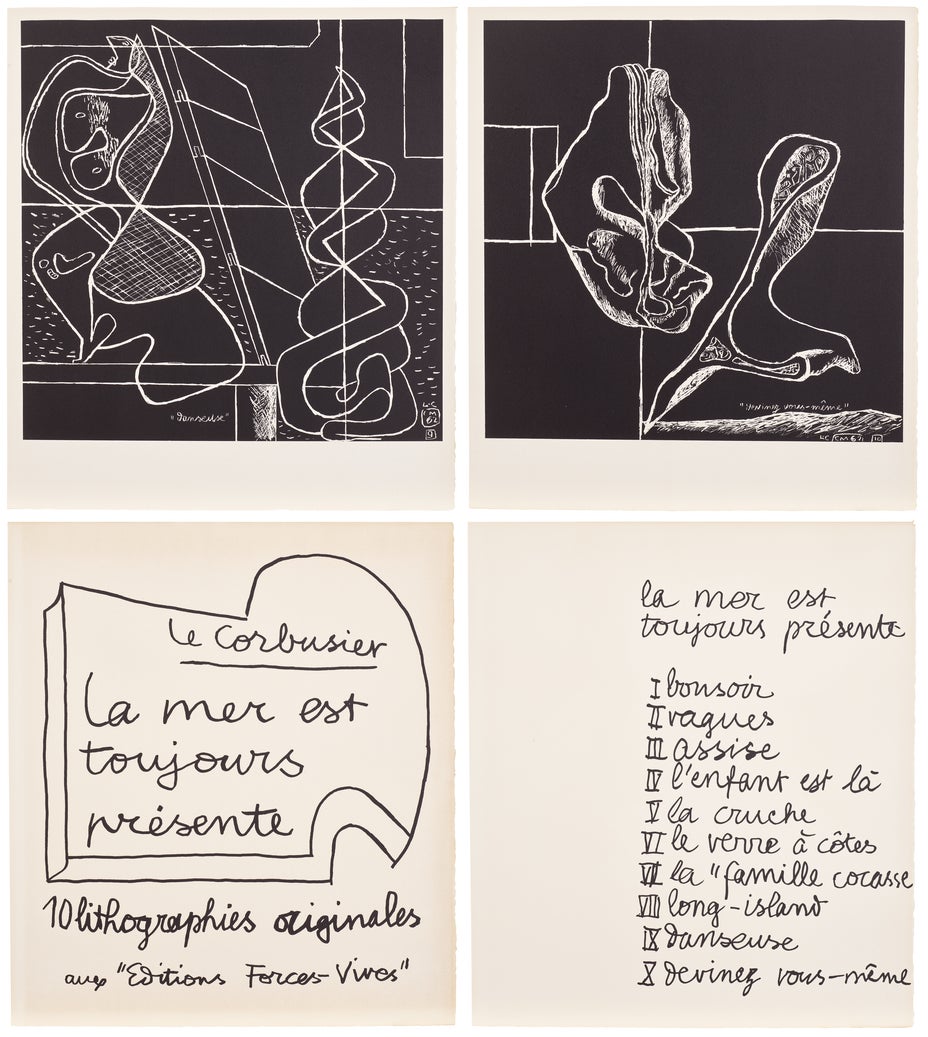 "Danseuse"
L-C
M
62
9
"Devinez vous-même"
LC CM 62 10
Le Corbusier
la mer est
toujours
présente
10 lithographies originales
aux "Editions Forces-Vives"
la mer est
toujours présente
I bonsoir
II vagues
III assise
IV l'enfant est là
V la cruche
VI le verre à côtes
VII la "famille cocasse
VIII long-island
IX Danseuse
X Devinez vous-même